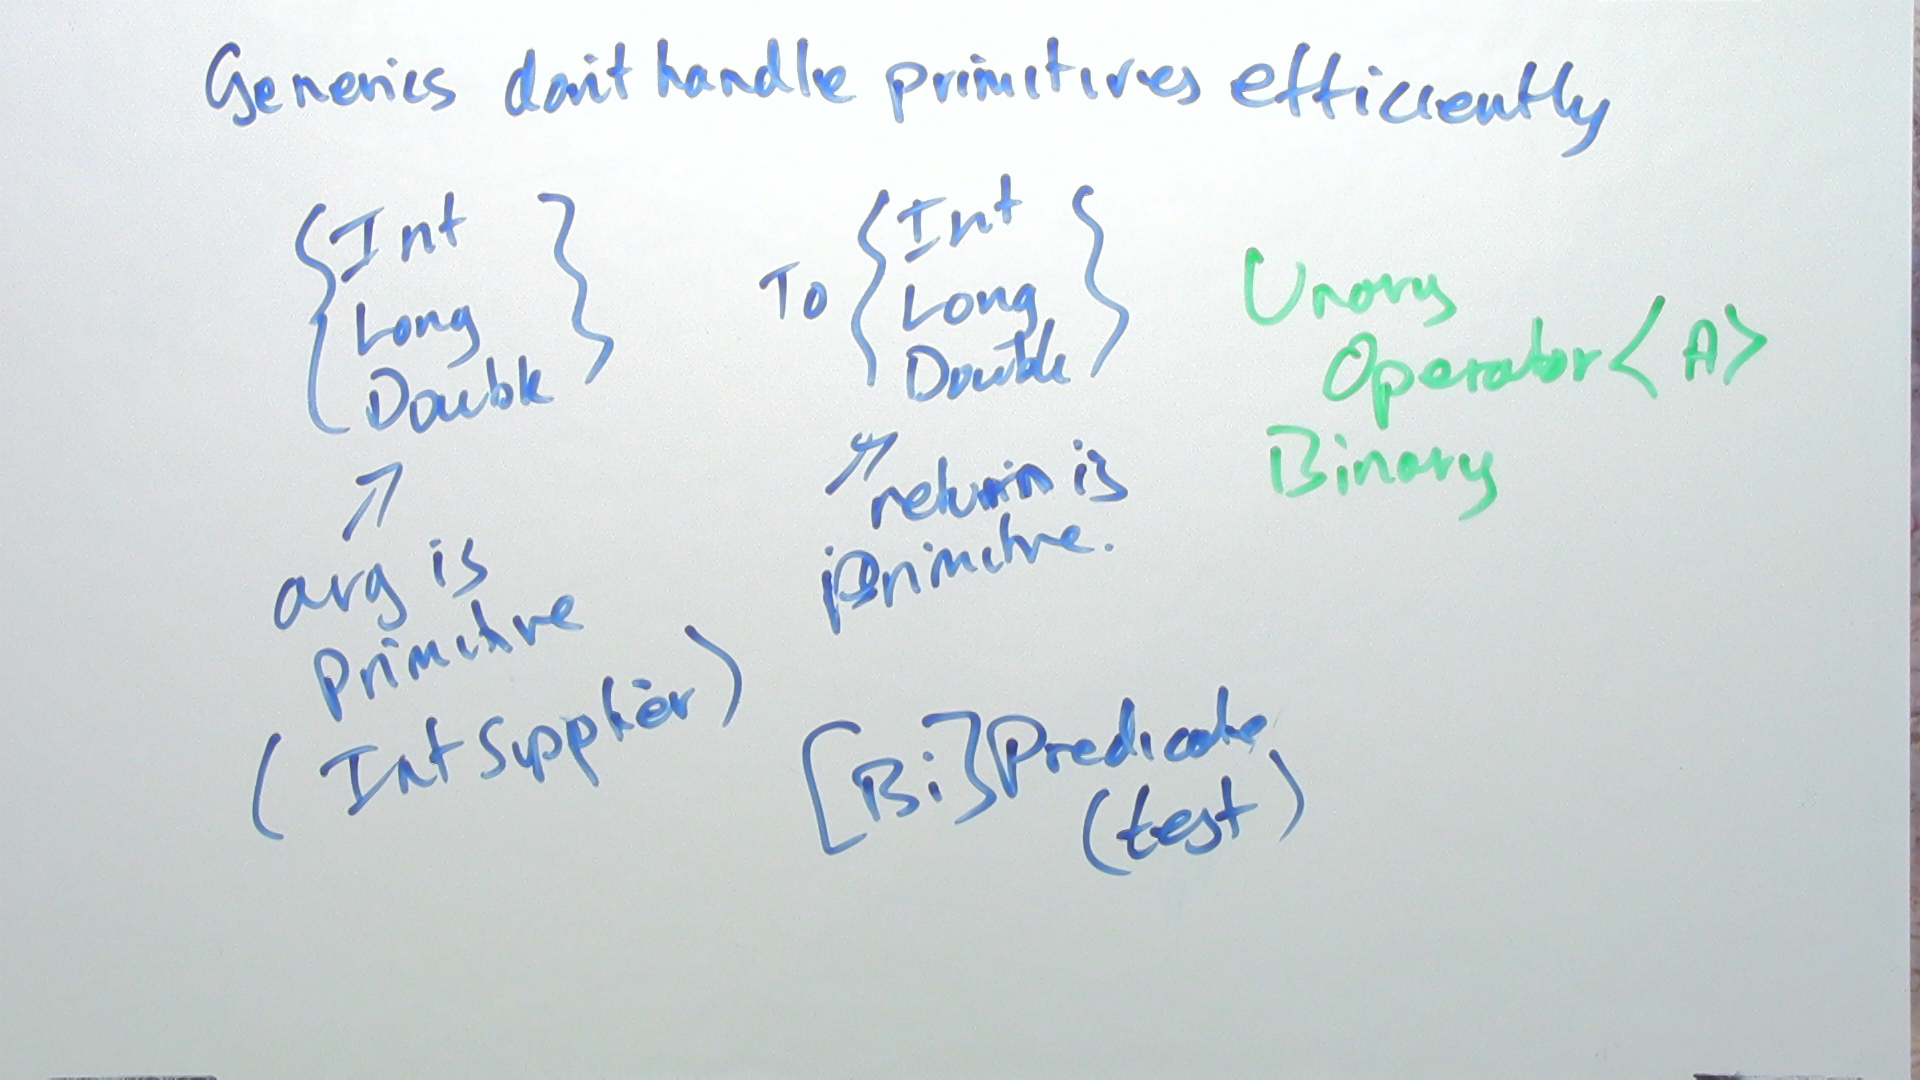 Generics don't handle primitives efficiently
{Int
Long
Double}
↗
arg is
primitive
(IntSupplier)
To {Int
Long
Double}
↗
return is
primitive.
[Bi]Predicate
(test)
Unary
Operator<A>
Binary